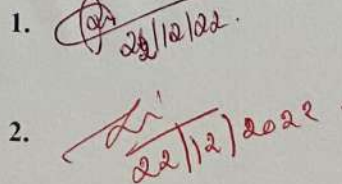 1.
22/12/22.
2.
22/12/2022